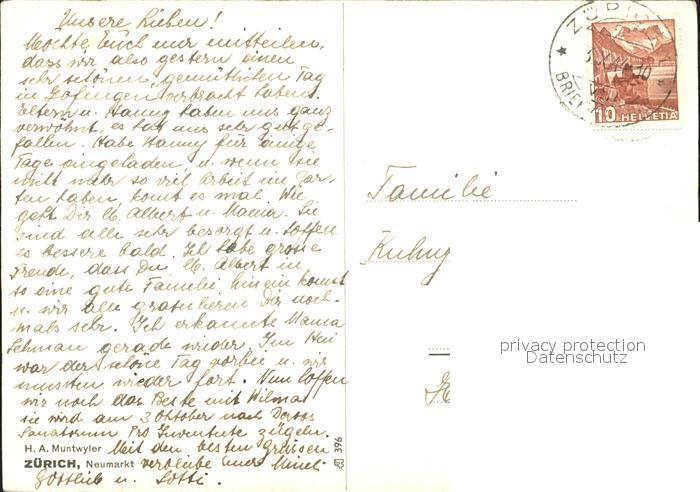 Unsere Lieben!
Möchte Euch nur mitteilen,
dass wir also gestern einen
sehr schönen, gemütlichen Tag
in Zofingen verbracht haben.
Eltern u. Hanny haben uns ganz
verwöhnt, es hat uns sehr gut ge-
fallen. Habe Hanny für einige
Tage eingeladen u. wenn sie
nicht mehr so viel Arbeit im Gar-
ten haben, komt es mal. Wie
geht Dir lb. Albert u. Mama. Sie
sind alle sehr besorgt u. hoffen
es bessere bald. Ich habe grosse
Freude, dass Du, lb. Albert in
so eine gute Familie hinein komst
u. wir alle gratulieren Dir noch-
mals sehr. Ich erkannte Mama
Lehman gerade wieder. Im Hui
war der schöne Tag vorbei u. wir
mussten wieder fort. Nun hoffen
wir noch das Beste mit Wilma
sie wird am 3 Oktober nach Davos
Sanatorium Pro Juventute zügeln.
H. A. Muntwyler Mit den besten Grüssen
ZÜRICH, Neumarkt verbleibe Euer
Gottlieb u. Lotti.
396
ZÜRICH
BRIEF
10 HELVETIA
Familie
privacy protection
Datenschutz